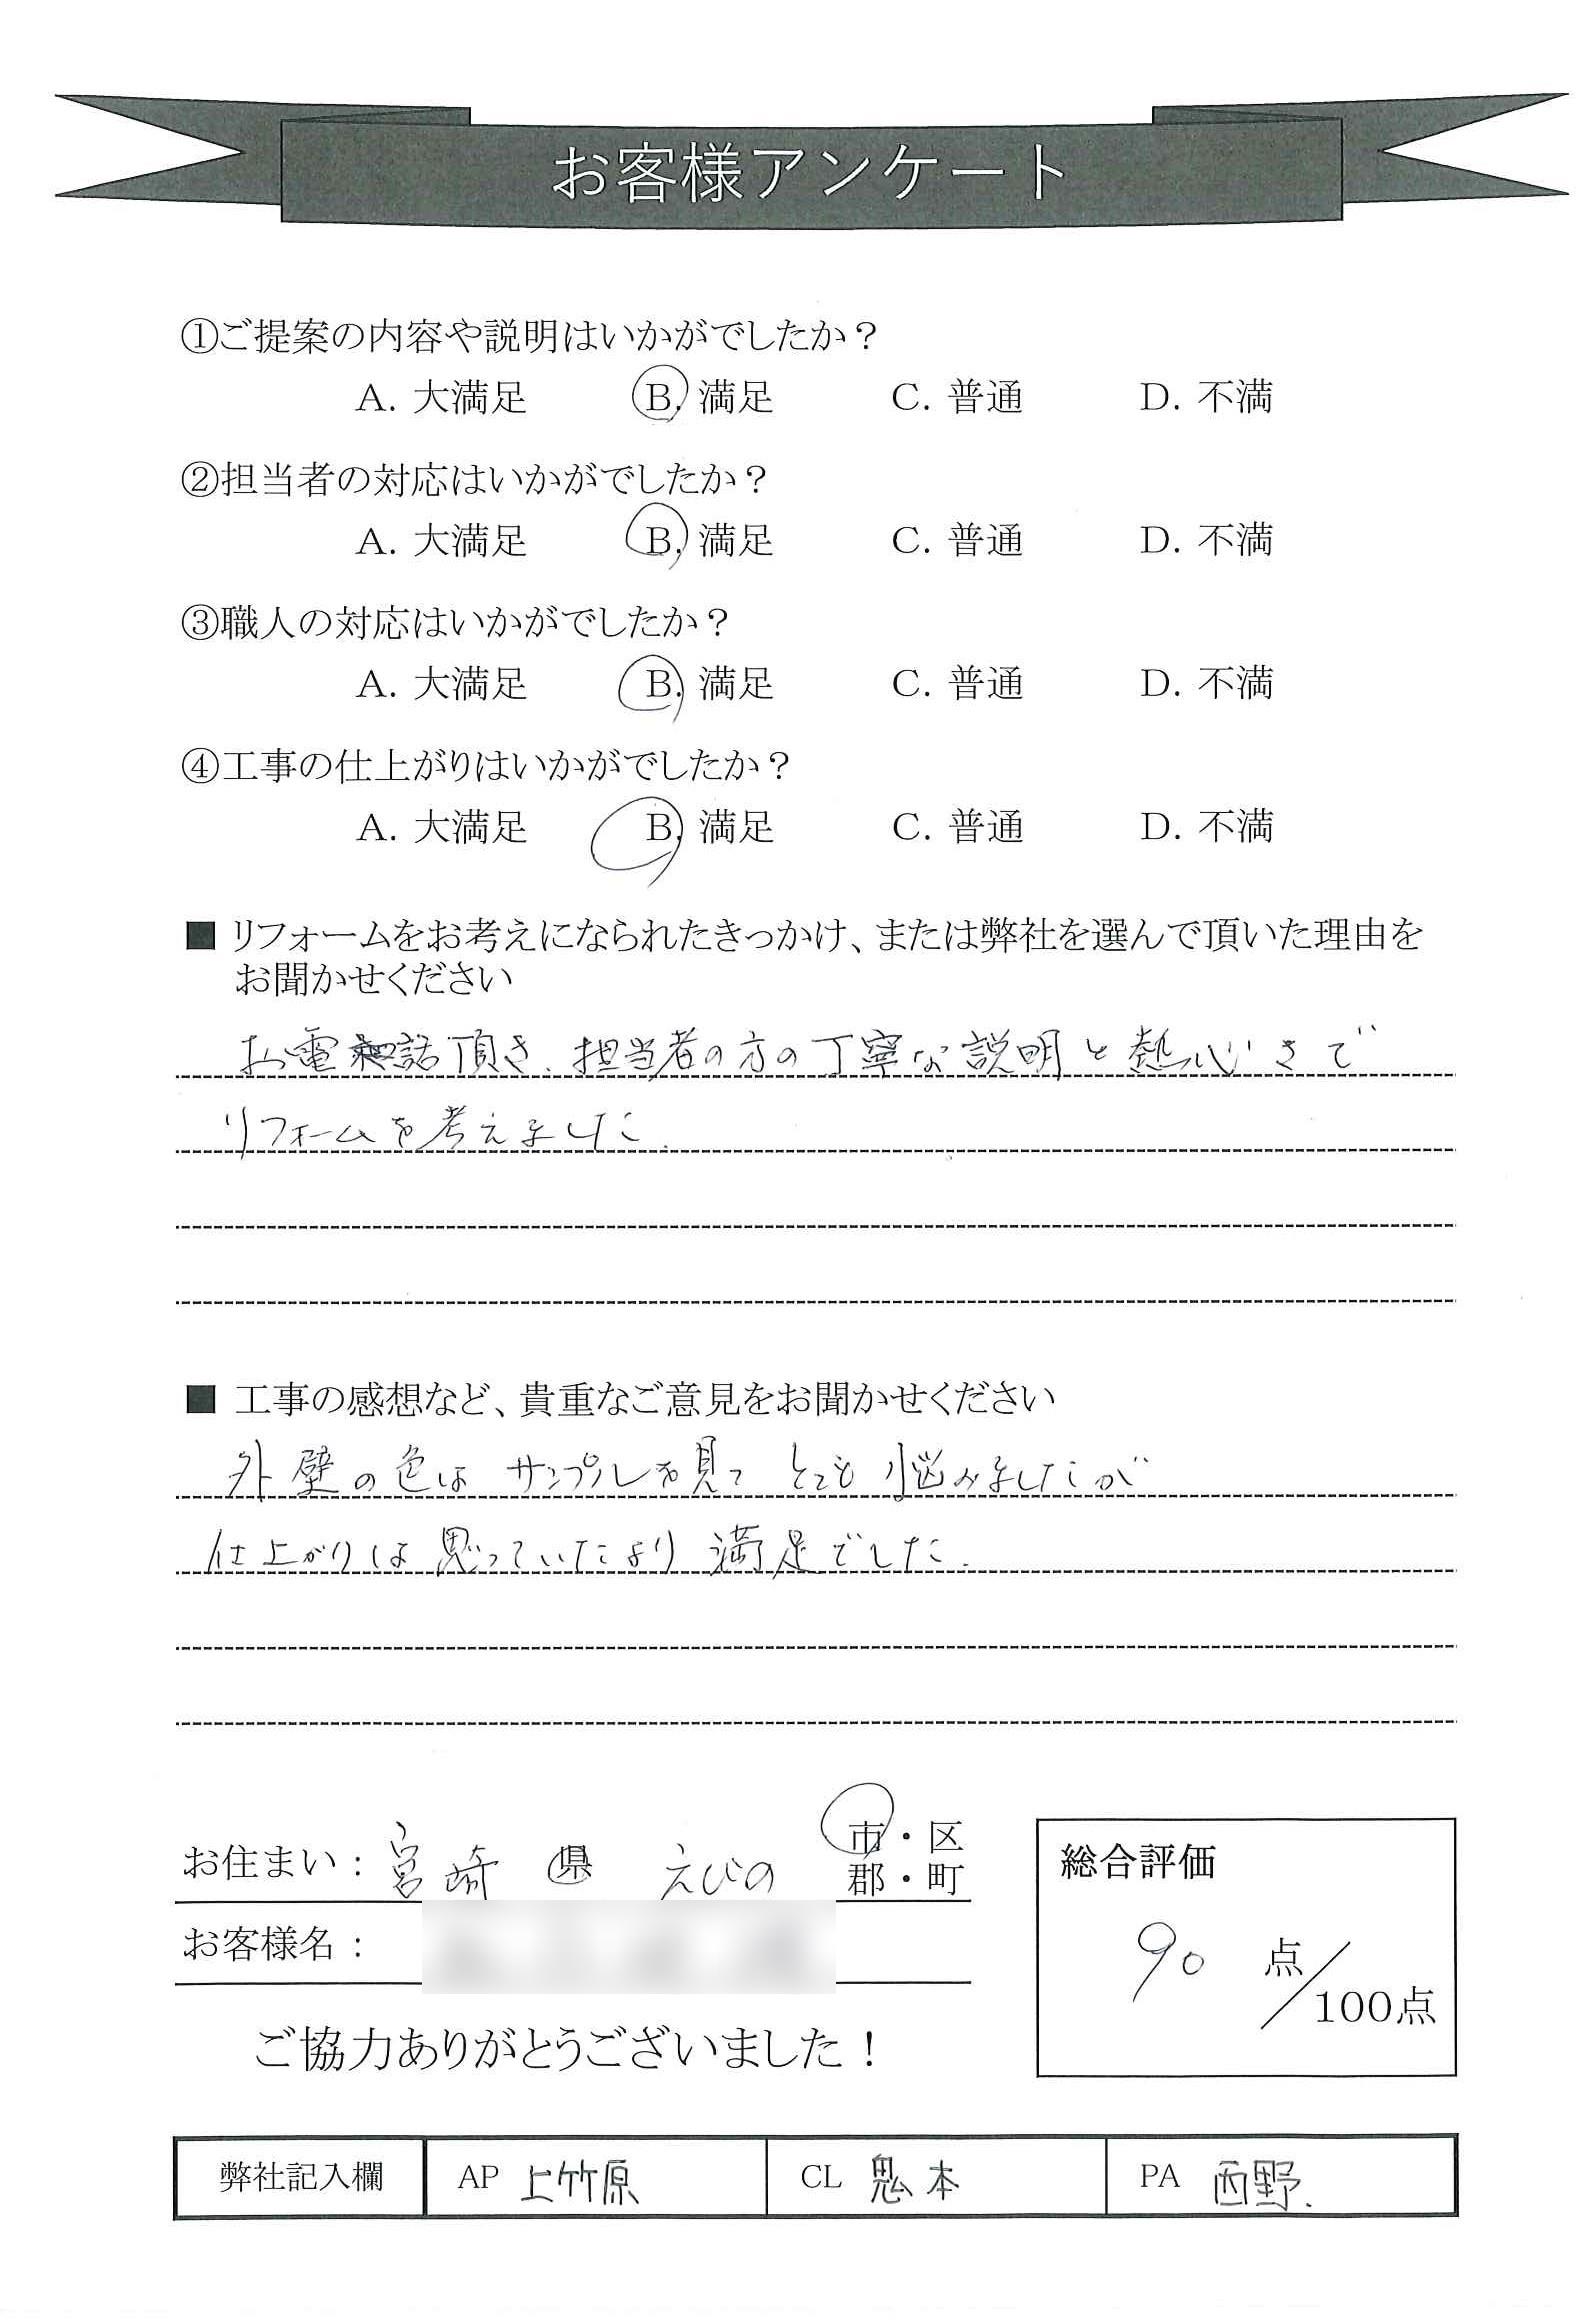 お客様アンケート
①ご提案の内容や説明はいかがでしたか？
A. 大満足 B. 満足 C. 普通 D. 不満
②担当者の対応はいかがでしたか？
A. 大満足 B. 満足 C. 普通 D. 不満
③職人の対応はいかがでしたか？
A. 大満足 B. 満足 C. 普通 D. 不満
④工事の仕上がりはいかがでしたか？
A. 大満足 B. 満足 C. 普通 D. 不満
■ リフォームをお考えになられたきっかけ、または弊社を選んで頂いた理由を
お聞かせください
お電話頂き、担当者の方の丁寧な説明と熱心さで
リフォームを考えました.
■ 工事の感想など、貴重なご意見をお聞かせください
外壁の色はサンプルを見てとても悩みましたが
仕上がりは思っていたより満足でした.
お住まい： 宮崎 県 えびの 市・区
郡・町
お客様名：
ご協力ありがとうございました！
総合評価
90 点／100点
弊社記入欄 AP 上竹原 CL 本 PA 西野.